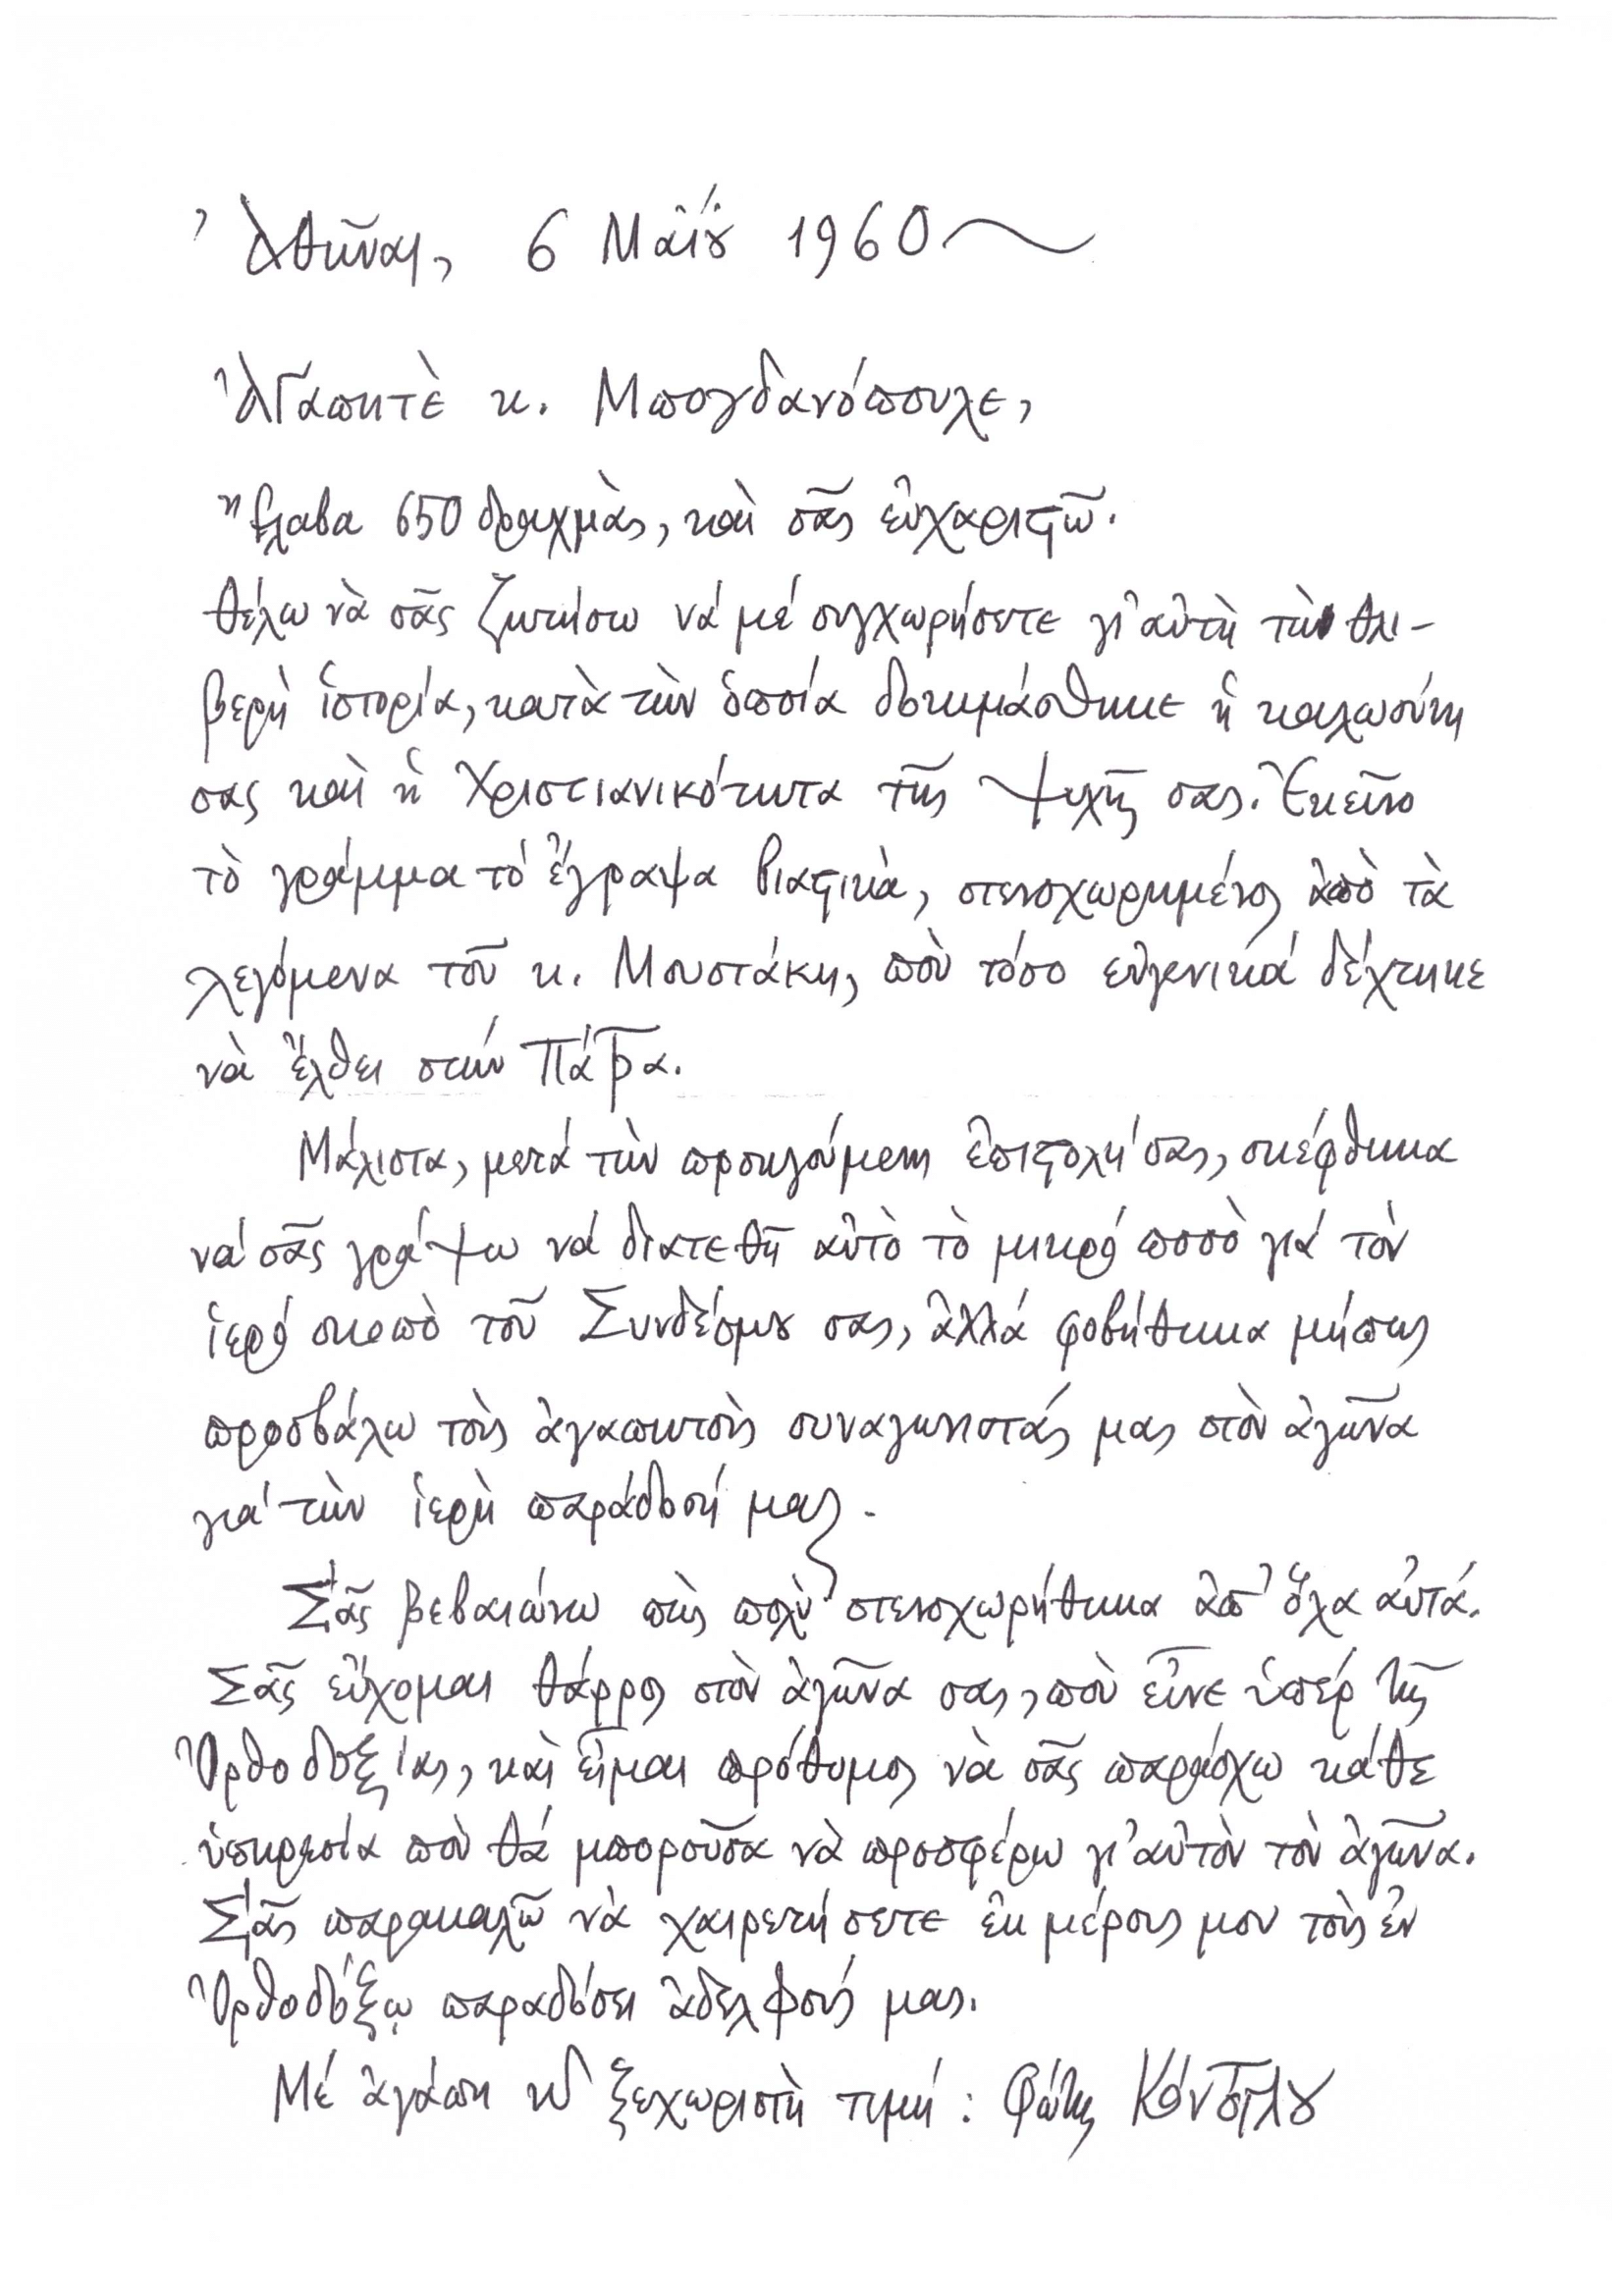 Ἀθῆναι, 6 Μαΐου 1960
Ἀγαπητὲ κ. Μπογδανόπουλε,
Ἔλαβα 650 δραχμὰς, καὶ σᾶς εὐχαριστῶ.
Θέλω νὰ σᾶς ζητήσω νά μέ συγχωρήσετε γι' αὐτὴ τὴ θλι-
βερὴ ἱστορία, κατὰ τὴν ὁποία δοκιμάσθηκε ἡ καλωσύνη
σας καὶ ἡ Χριστιανικότητα τῆς ψυχῆς σας. Ἐκεῖνο
τὸ γράμμα τό ἔγραψα βιαστικὰ, στενοχωρημένος ἀπὸ τὰ
λεγόμενα τοῦ κ. Μουστάκη, ποὺ τόσο εὐγενικά δέχτηκε
νὰ ἔλθει στήν Πάτρα.
Μάλιστα, μετά τὴν προηγούμενη ἐπιστολή σας, σκέφθηκα
νά σᾶς γράψω νά διατεθῆ αὐτὸ τὸ μικρό ποσὸ γιά τὸν
ἱερό σκοπὸ τοῦ Συνδέσμου σας, ἀλλά φοβήθηκα μήπως
προσβάλω τοὺς ἀγαπητοὺς συναγωνιστάς μας στὸν ἀγῶνα
γιά τὴν ἱερὴ παράδοσή μας.
Σᾶς βεβαιώνω πὼς πολὺ στενοχωρήθηκα ἀπ' ὅλα αὐτά.
Σᾶς εὔχομαι θάρρος στὸν ἀγῶνα σας, ποὺ εἶνε ὑπέρ τῆς
Ὀρθοδοξίας, καὶ εἶμαι πρόθυμος νὰ σᾶς παράσχω κάθε
ὑπηρεσία ποὺ θά μποροῦσα νὰ προσφέρω γι' αὐτὸν τὸν ἀγῶνα.
Σᾶς παρακαλῶ νὰ χαιρετήσετε ἐκ μέρους μου τοὺς ἐν
Ὀρθοδόξῳ παραδόσει ἀδελφούς μας.
Μέ ἀγάπη κ' ξεχωριστὴ τιμή : Φώτης Κόντογλου